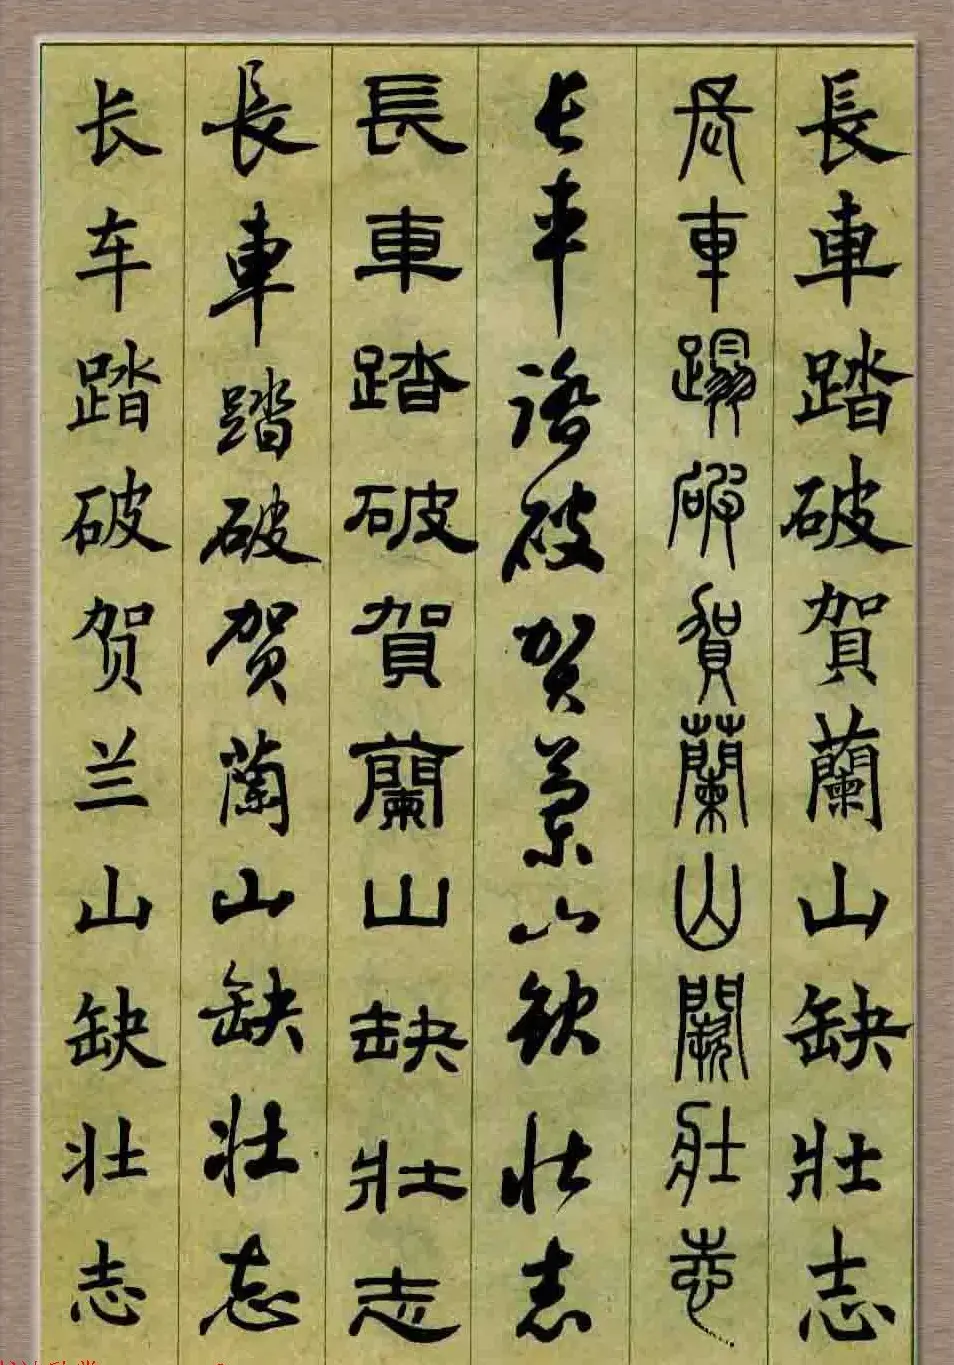 長車踏破賀蘭山缺壯志
長車蹋破賀蘭山闕壯志
长车踏破贺兰山缺壮志
長車踏破賀蘭山缺壯志
長車踏破贺蘭山缺壮志
长车踏破贺兰山缺壮志